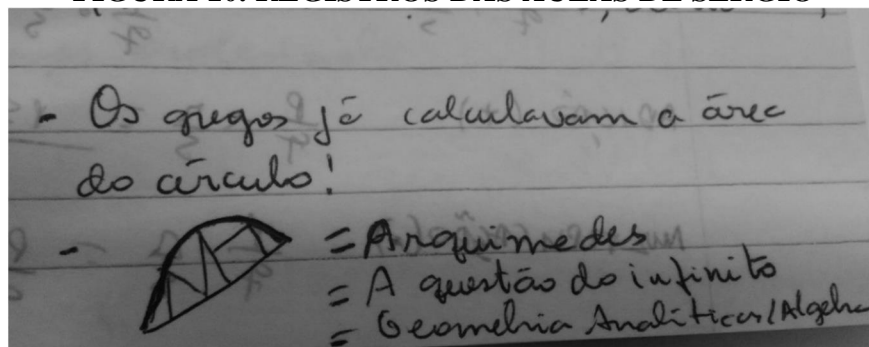 - Os gregos já calculavam a área
do círculo!
- = Arquimedes
= A questão do infinito
= Geometria Analítica/Algebra